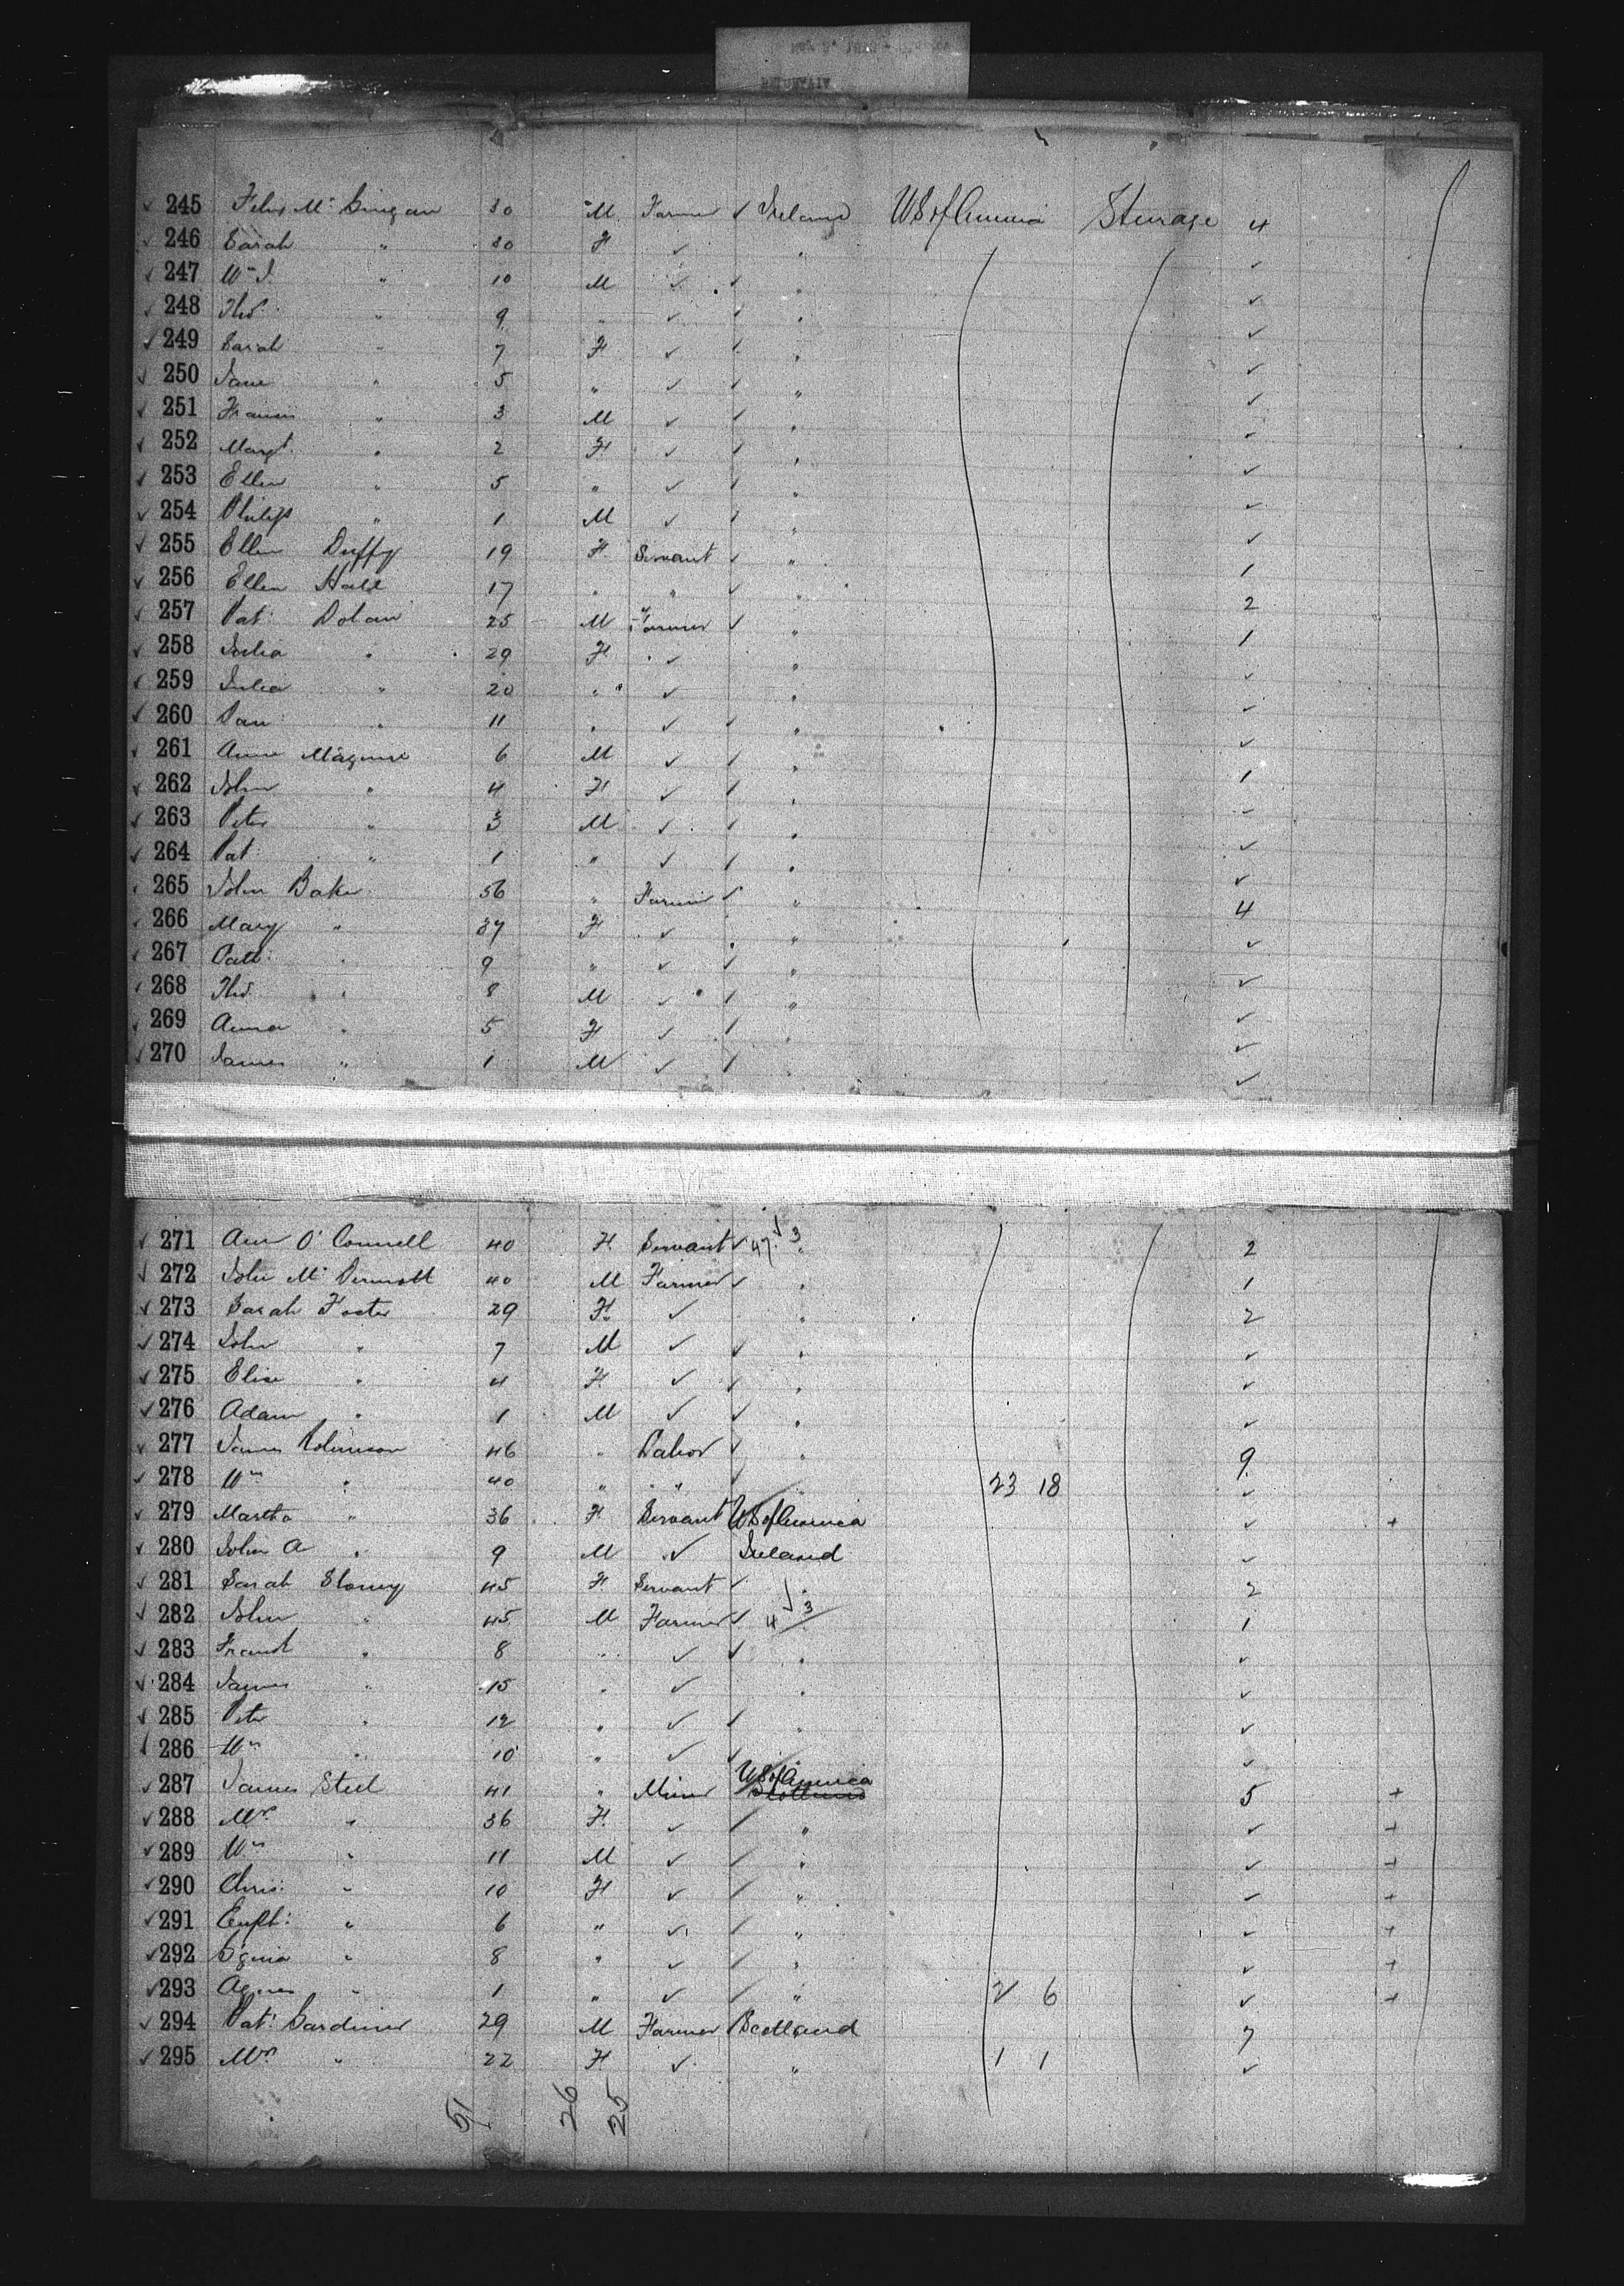 245 Felix Mc Gingan 30 M. Farmer ✓ Ireland US of America Steerage 4
246 Sarah " 30 F ✓ " ✓
247 Wm J. " 10 M ✓ ✓ " ✓
248 Thos " 9 " ✓ ✓ " ✓
249 Sarah " 7 F ✓ ✓ " ✓
250 Jane " 5 " ✓ ✓ " ✓
251 Francis " 3 M ✓ ✓ " ✓
252 Margt " 2 F ✓ ✓ " ✓
253 Ellen " 5 " ✓ ✓ " ✓
254 Philip " 1 M ✓ ✓ " ✓
255 Ellen Duffy 19 F Servant ✓ " 1
256 Ellen Hall 17 " " ✓ " 2
257 Pat: Dolan 25 M Farmer ✓ " 1
258 " 29 F ✓ " ✓
259 Julia " 20 " ✓ " ✓
260 " 11 " ✓ ✓ " ✓
261 Anne Maguire 6 M ✓ ✓ " 1
262 John " 4 F ✓ ✓ " ✓
263 Peter " 3 M ✓ ✓ " ✓
264 Pat " 1 " ✓ ✓ " ✓
265 John Baker 56 " Farmer ✓ " 4
266 Mary " 37 F ✓ " ✓
267 " 9 " ✓ ✓ " ✓
268 Thos " 8 M ✓ ✓ " ✓
269 Anna " 5 F ✓ ✓ " ✓
270 James " 1 M ✓ ✓ " ✓
271 Ann O'Connell 40 F Servant ✓ 47 3 " 2
272 John Mc Dermott 40 M Farmer ✓ " 1
273 Sarah Foster 29 F ✓ " 2
274 John " 7 M ✓ ✓ " ✓
275 Elise " 4 F ✓ ✓ " ✓
276 Adam " 1 M ✓ ✓ " ✓
277 James Robinson 46 " Labor ✓ " 9
278 Wm " 40 " " ✓ 23 18 ✓
279 Martha " 36 F Servant US of America ✓ +
280 John A " 9 M ✓ Ireland ✓
281 Sarah Stoney 45 F Servant ✓ " 2
282 John " 45 M Farmer ✓ 4 3 1
283 " 8 " ✓ ✓ " ✓
284 James " 15 " ✓ " ✓
285 Peter " 12 " ✓ ✓ " ✓
286 Wm " 10 " ✓ ✓ ✓
287 James Steel 41 " Miner US of America Scotland 5 +
288 Mrs " 36 F ✓ ✓ " ✓ +
289 Wm " 11 M ✓ ✓ " ✓ +
290 Chris: " 10 F ✓ ✓ " ✓ +
291 Euph: " 6 " ✓ ✓ " ✓ +
292 " 8 " ✓ ✓ " ✓ +
293 Agnes " 1 " ✓ ✓ " 2 6 ✓ +
294 Pat: Gardiner 29 M Farmer Scotland 7
295 Mrs " 22 F ✓ " 1 1 ✓
51 26 25